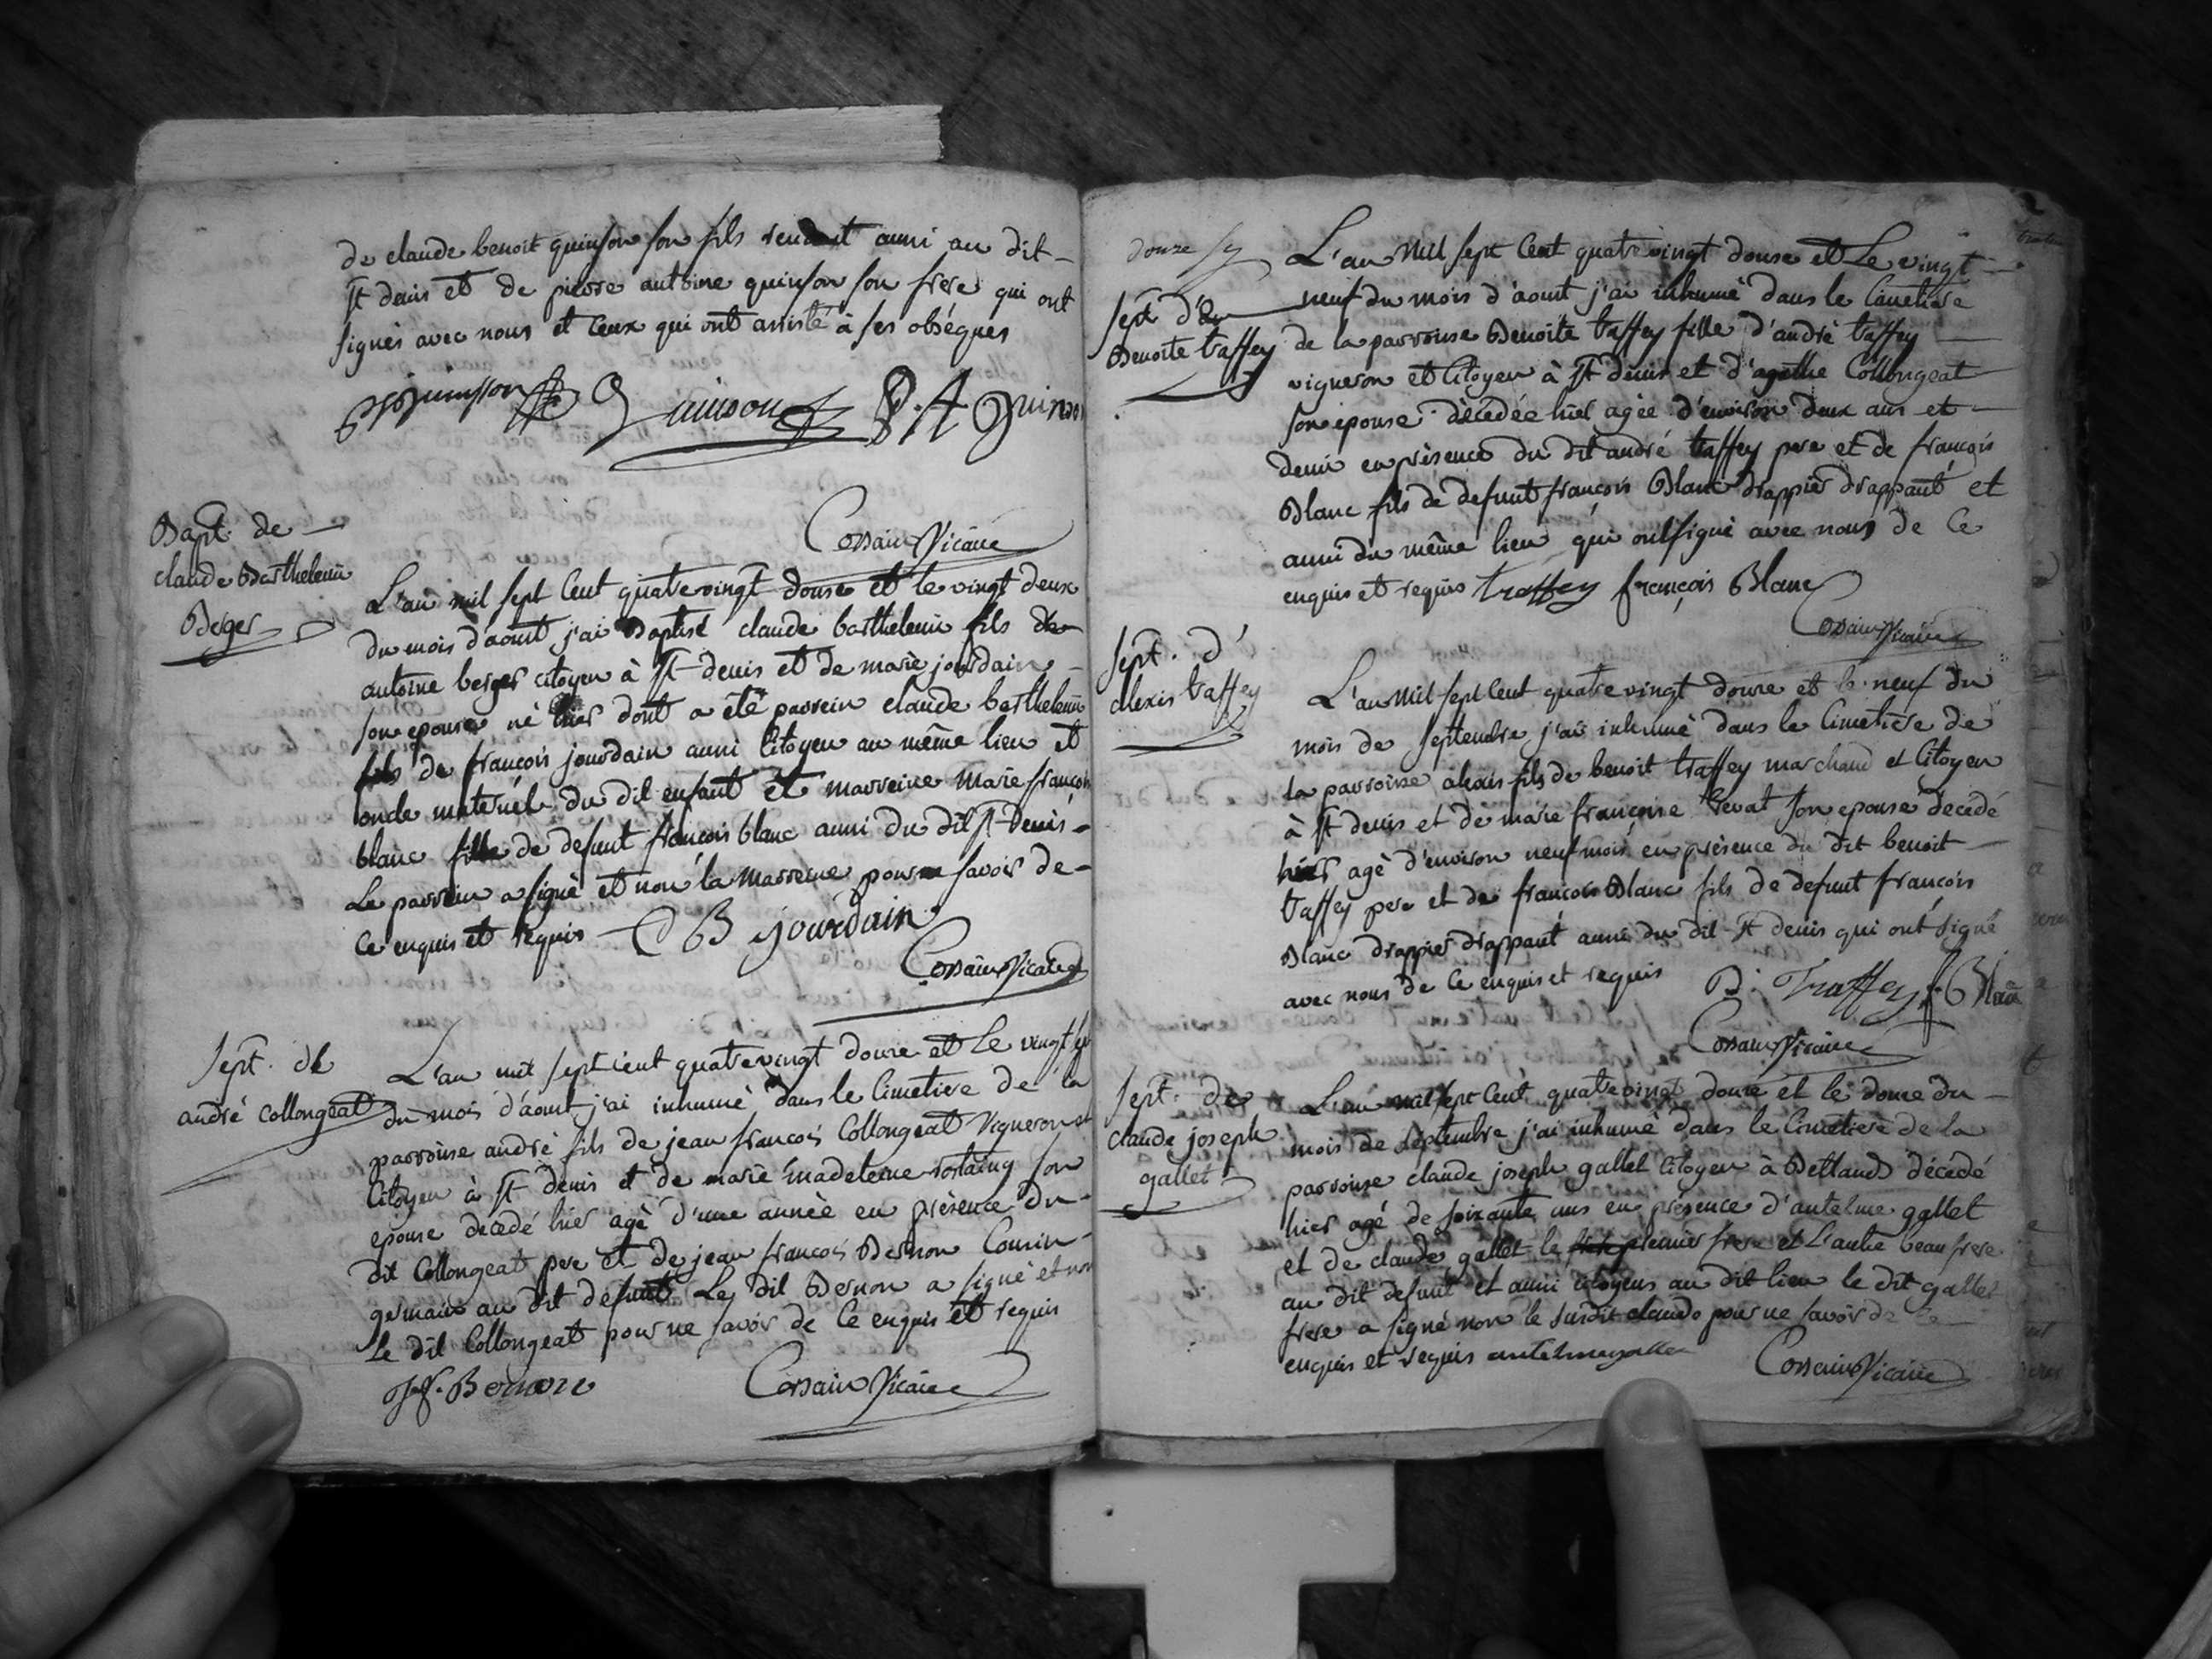 de claude benoit quinson son fils rendant aussi au dit
St denis et de pierre antoine quinson son frere qui ont
signés avec nous et ceux qui ont assisté à ses obséques
Quinson P. A Quinson
Cossain Vicaire
Bapt. de
claude Barthelemi
Beger
L'an mil sept Cent quatrevingt douze et le vingt deux
du mois d'aout j'ai Baptisé claude barthelemi fils de
antoine berger citoyen à St denis et de marie jourdain
son epouse né hier dont a été parrein claude barthelemi
fils de françois jourdain aussi Citoyen au même lieu et
oncle maternel du dit enfant et marreine Marie françoise
blanc fille de defunt françois blanc aussi du dit St Denis
Le parrein a signé et non la Marreine pour ne savoir de
ce enquis et requis C B jourdain
Cossain Vicaire
Sept. de
andré Collongeat
L'an mil sept cent quatrevingt douze et Le vingt
du mois d'aout j'ai inhumé dans le Cimetiere de la
parroisse andré fils de jean françois Collongeat Vigneron et
Citoyen à St denis et de marie madeleine rostaing son
epouse decedé hier agé d'une année en présence du
dit Collongeat pere et de jean françois Bernon Cousin
germain au dit defunt Le dit Bernon a signé et non
Le dit Collongeat pour ne savoir de Ce enquis et requis
J.f. Bernon Cossain Vicaire
douze
Sept. d'
Benoite traffey
L'an Mil sept Cent quatrevingt douse et Le vingt
neuf du mois d'aout j'ai inhumé dans le Cimetiere
de la parroisse Benoite traffey fille d'andré traffey
vigneron et Citoyen à St denis et d'agathe Collongeat
son epouse décédée hier agée d'environ deux ans et
demi en présence du dit andré traffey pere et de françois
Blanc fils de defunt françois Blanc drappier drappant et
aussi du même lieu qui ont signé avec nous de Ce
enquis et requis traffey françois Blanc
Cossain Vicaire
Sept. d'
alexis traffey
L'an Mil sept Cent quatrevingt douze et le neuf du
mois de Septembre j'ai inhumé dans le Cimetiere de
la parroisse alexis fils de benoit traffey marchand et Citoyen
à St denis et de marie françoise son epouse decedé
hier agé d'environ neuf mois en présence du dit benoit
traffey pere et de françois Blanc fils de defunt françois
Blanc drappier drappant aussi du dit St denis qui ont signé
avec nous de Ce enquis et requis B. Traffey f. Blanc
Cossain Vicaire
Sept. de
Claude joseph
gallet
L'an mil sept Cent quatrevingt douze et le douze du
mois de Septembre j'ai inhumé dans le Cimetiere de la
parroisse claude joseph gallet Citoyen à Bettand décédé
hier agé de soixante ans en présence d'antelme gallet
et de claude gallet le premier frere et L'autre beau frere
au dit defunt et aussi citoyens au dit lieu le dit gallet
frere a signé non le susdit claude pour ne savoir de
enquis et requis antelme gallet Cossain Vicaire